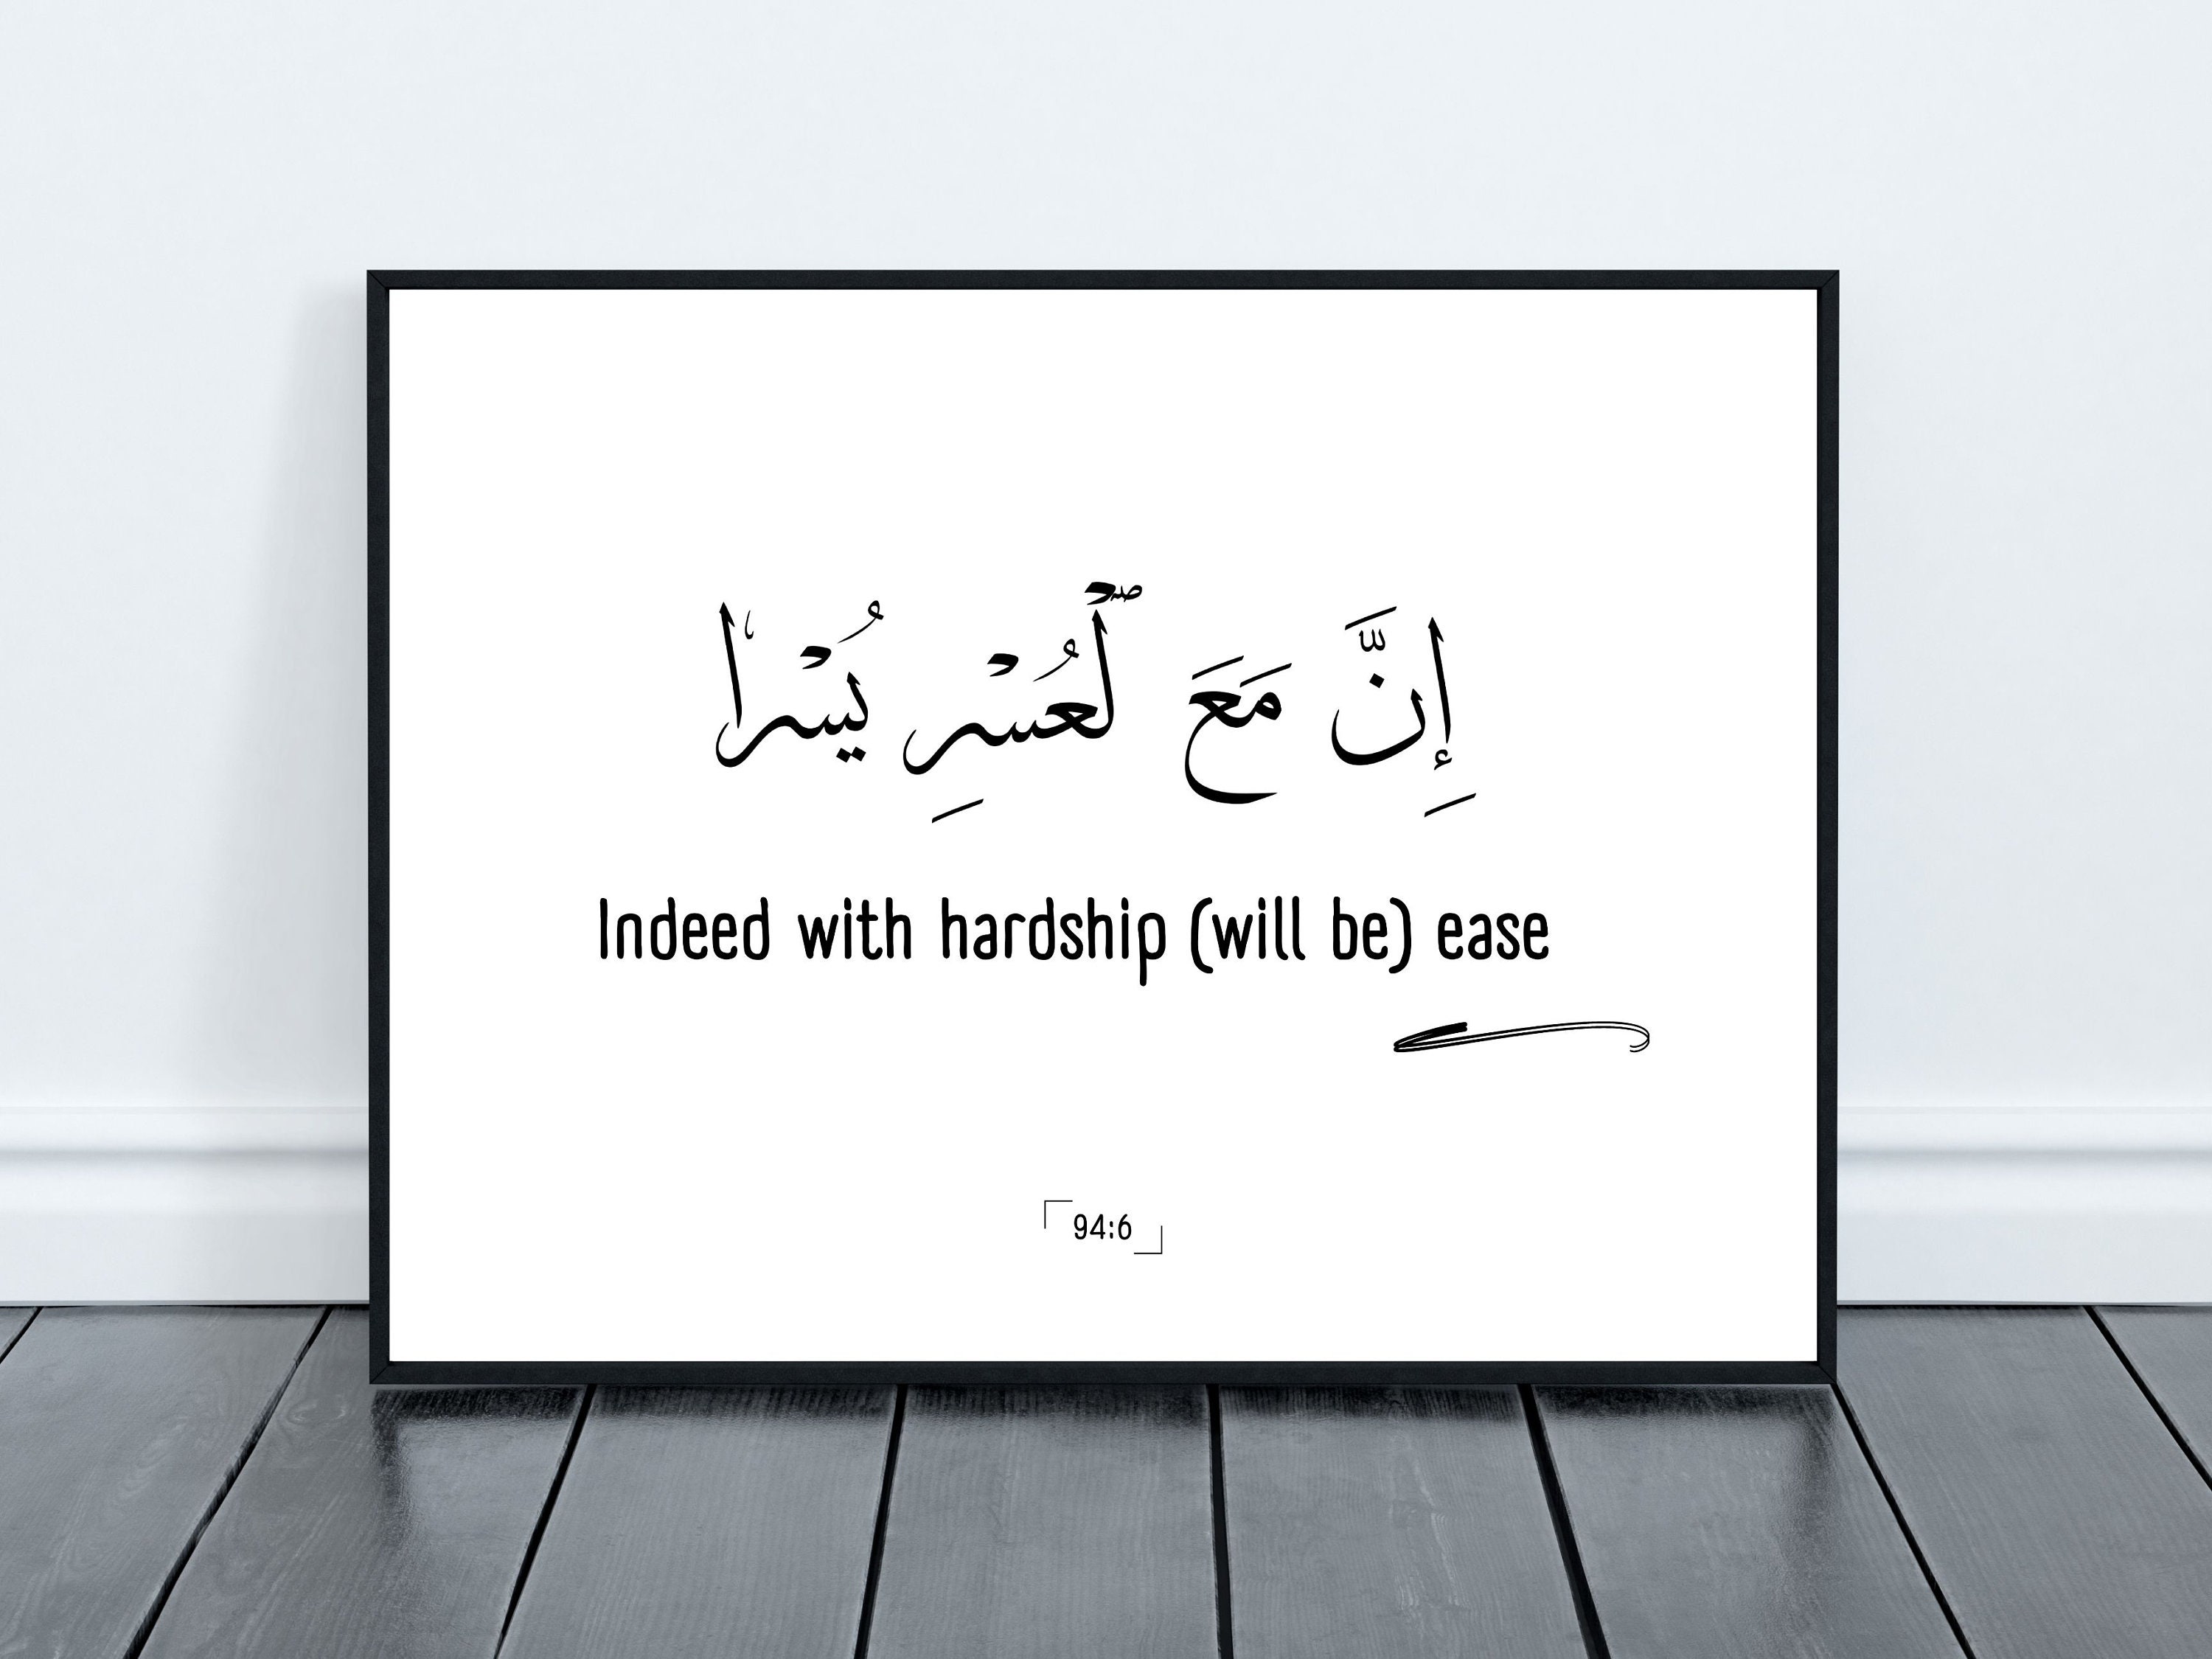 إِنَّ مَعَ لْعُسْرِ يُسْرا
Indeed with hardship (will be) ease
94:6